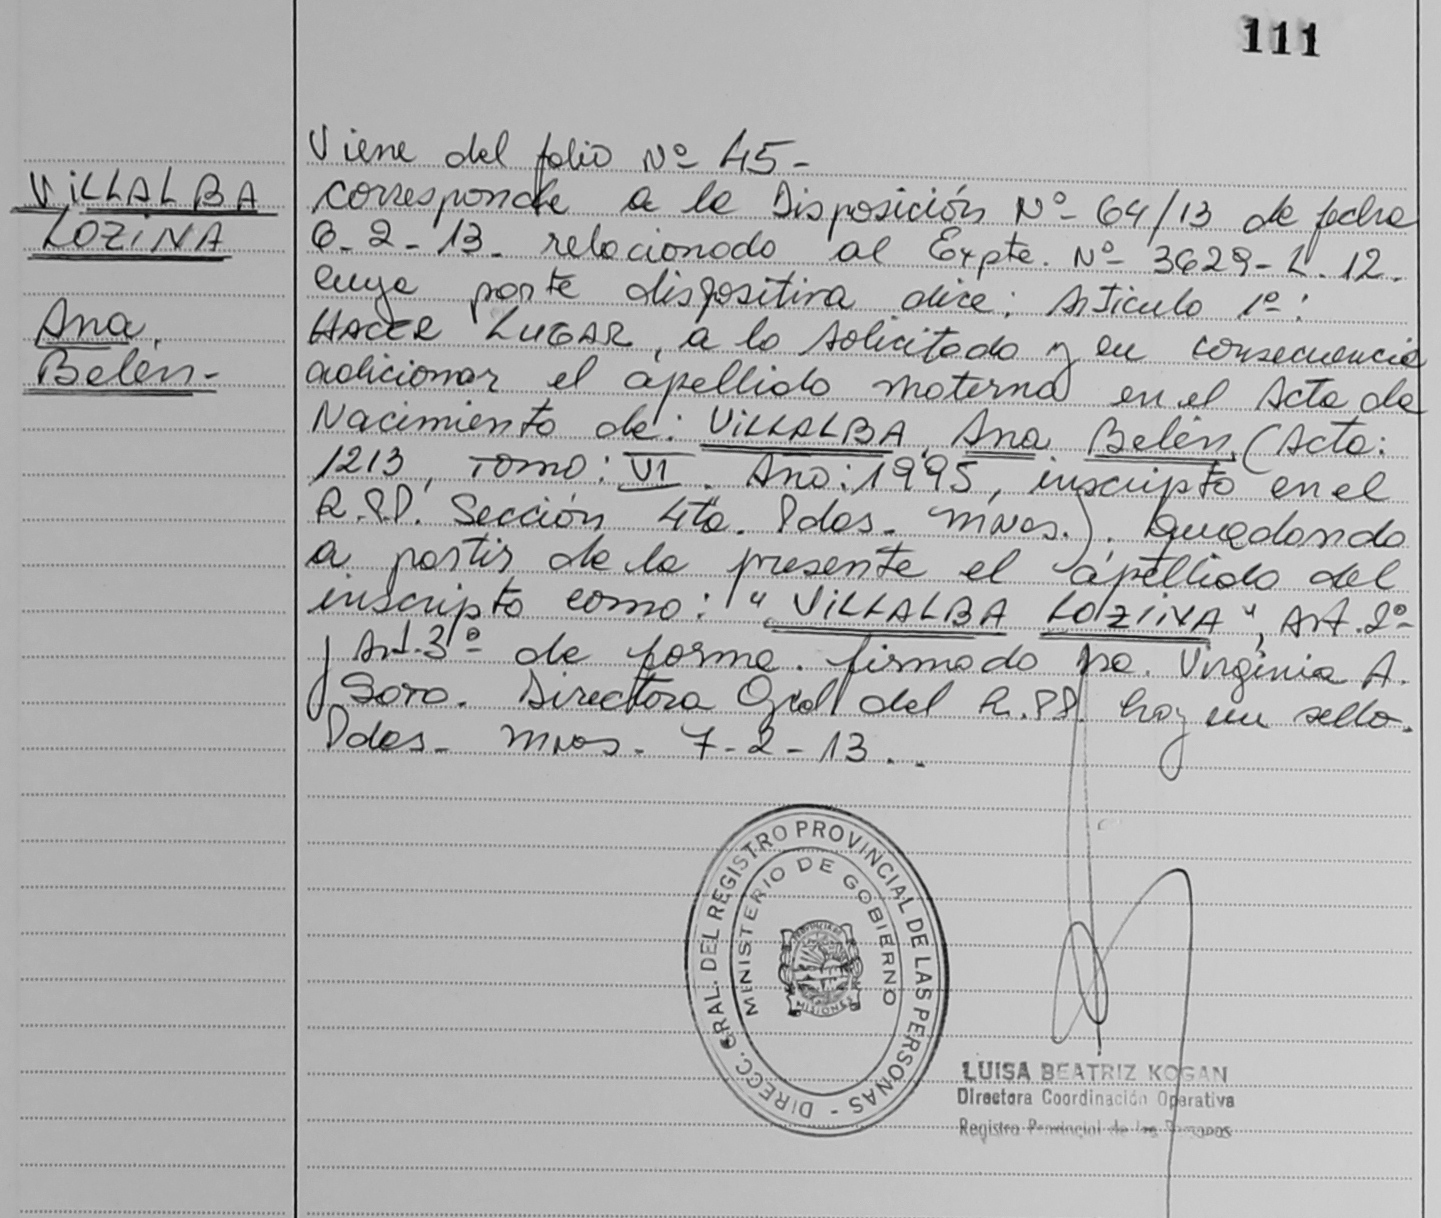 111
Viene del folio Nº 45-
VILLALBA
LOZINA
Ana,
Belén-
corresponde a la Disposición Nº 64/13 de fecha
6-2-13. relacionado al Expte. Nº 3629-L.12.
cuya parte dispositiva dice: Articulo 1º:
HACER LUGAR, a lo solicitado y en consecuencia
adicionar el apellido materno en el Acta de
Nacimiento de: VILLALBA, Ana Belén, (Acta:
1213, Tomo: VI. Año: 1995, inscripto en el
R.PP. Sección 4ta. Pdas. Mnes.). Quedando
a partir de la presente el apellido del
inscripto como: "VILLALBA LOZINA", Art. 2º
y Art. 3º de forma. firmado Virginia A.
Soro. Directora Gral del R.PP. hay un sello.
Pdas. Mnes. 7-2-13..
DIRECC. GRAL. DEL REGISTRO PROVINCIAL DE LAS PERSONAS -
MINISTERIO DE GOBIERNO
MISIONES
LUISA BEATRIZ KOGAN
Directora Coordinación Operativa
Registro Provincial de las Personas